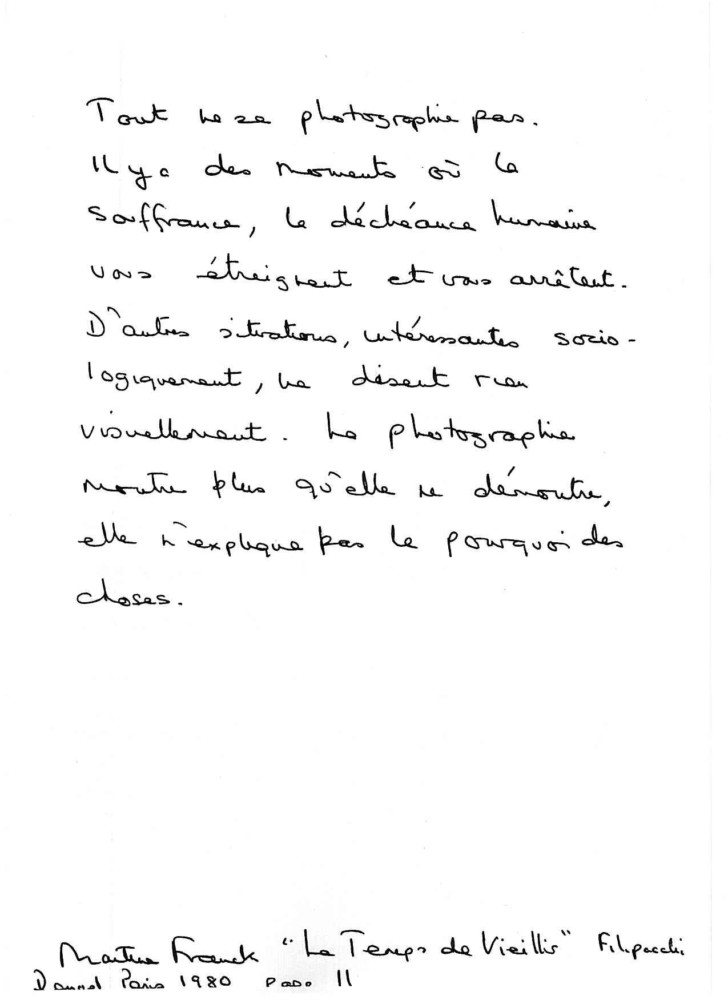 Tout ne se photographie pas.
Il y a des moments où la
souffrance, la déchéance humaine
vous étreignent et vous arrêtent.
D'autres situations, intéressantes socio-
logiquement, ne disent rien
visuellement. La photographie
montre plus qu'elle ne démontre,
elle n'explique pas le pourquoi des
choses.
Martine Franck "Le Temps de Vieillir" Filipacchi
Paris 1980 11